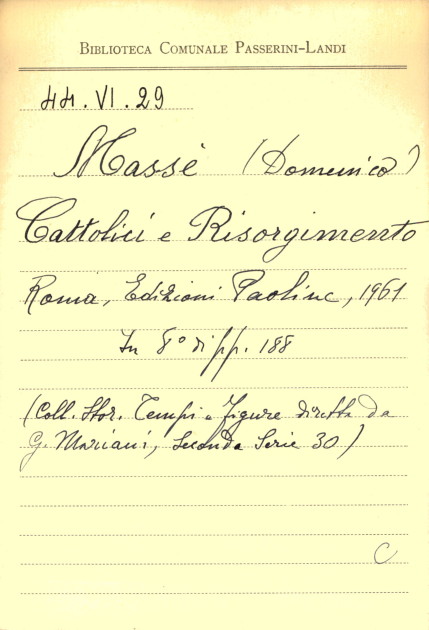 BIBLIOTECA COMUNALE PASSERINI-LANDI
44.VI.29
Massè (Domenico)
Cattolici e Risorgimento
Roma, Edizioni Paoline, 1961
In 8° di pp. 188
(Coll. Stor. Tempi e Figure diretta da
G. Mariani, Seconda Serie 30)
C